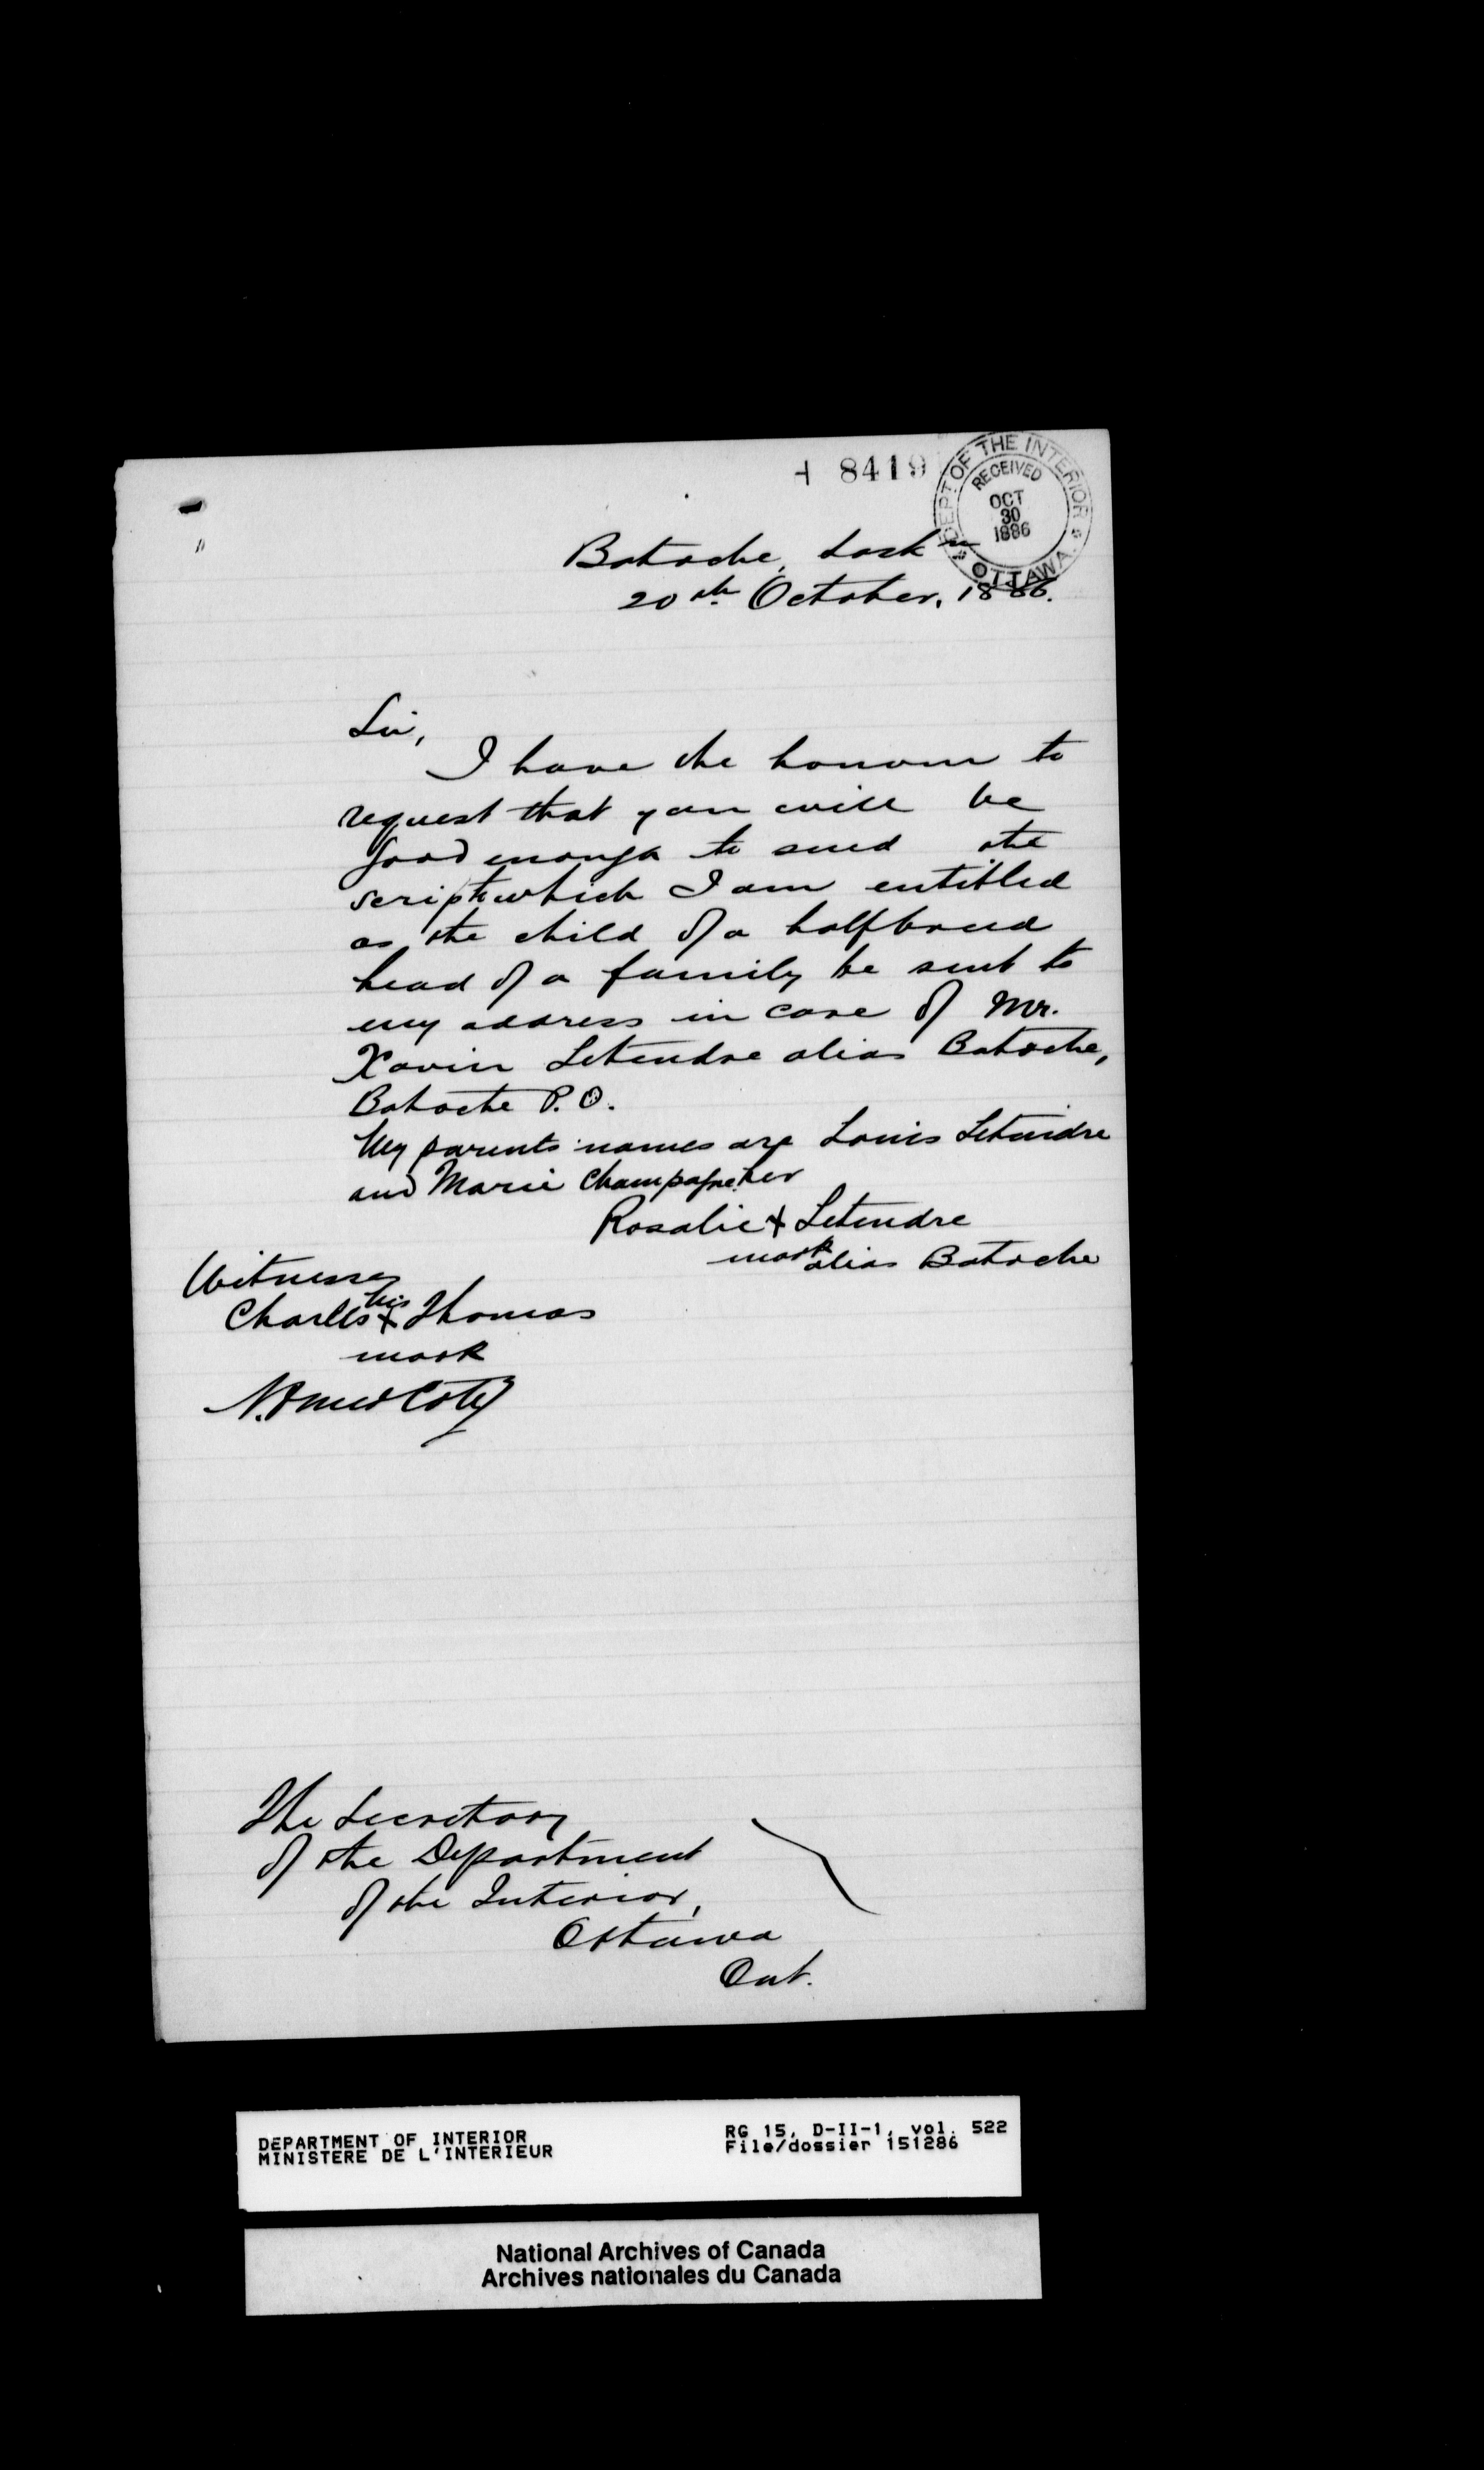 8419
DEPT OF THE INTERIOR
RECEIVED
OCT
30
1886
OTTAWA
Batoche, Sask n
20th October, 1886.
Sir,
I have the honour to
request that you will be
good enough to send the
script to which I am entitled
as the child of a halfbreed
head of a family be sent to
my address in care of Mr.
Xavier Letendre alias Batoche,
Batoche P.O.
My parents names are Louis Letendre
and Marie Champagne.
her
Rosalie + Letendre
mark alias Batoche
Witnesses
his
Charles + Thomas
mark
N. Coté
The Secretary
of the Department
of the Interior,
Ottawa
Ont.
DEPARTMENT OF INTERIOR
MINISTERE DE L'INTERIEUR
RG 15, D-II-1, vol. 522
File/dossier 151286
National Archives of Canada
Archives nationales du Canada